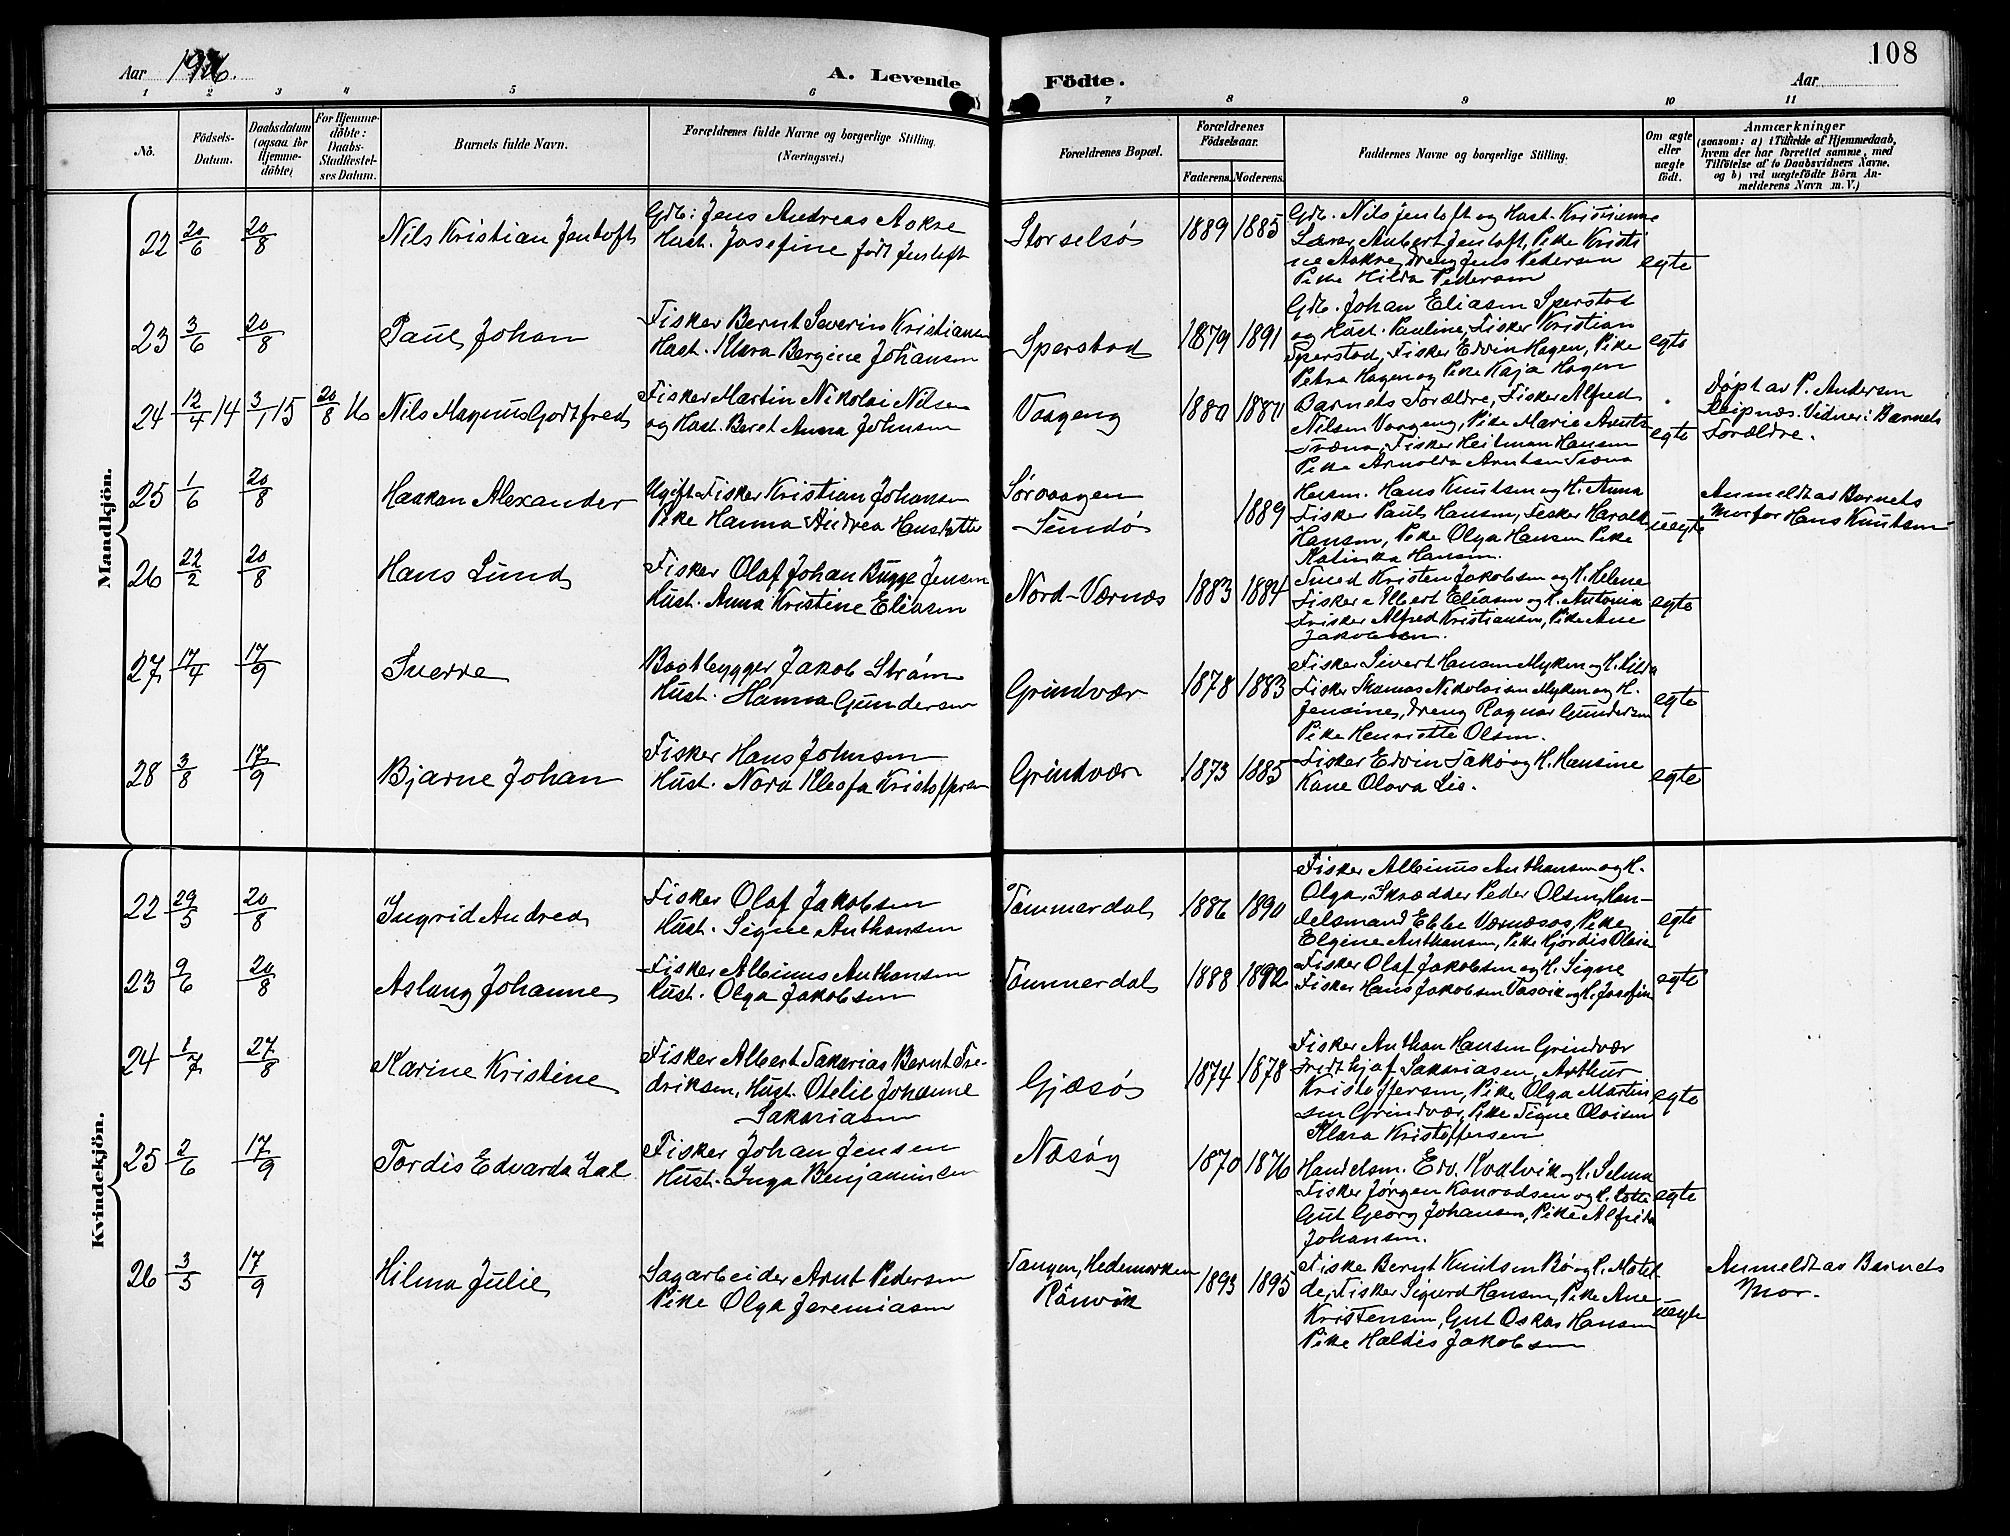 Aar 1916.
A. Levende Födte.
Aar
108
1 2 3 4 5 6 7 8 9 10 11
No.
Födsels-
Datum.
Daabsdatum
(ogsaa for
Hjemme-
döbte)
For Hjemme-
döbte:
Daabs-
Stadfæstel-
ses Datum.
Barnets fulde Navn.
Forældrenes fulde Navne og borgerlige Stilling.
(Næringsvei.)
Forældrenes Bopæl.
Forældrenes
Födselsaar.
Faderens. Moderens.
Faddernes Navne og borgerlige Stilling.
Om ægte
eller
uægte
födt.
Anmærkninger
(saasom: a) i Tilfælde af Hjemmedaab,
hvem der har forrettet samme, med
Tilföielse af to Daabsvidners Navne.
og b) ved uægtefödte Börn An-
melderens Navn m. V.)
Mandkjön.
22 20/6 20/8 Nils Kristian Jentoft
Gdb: Jens Andreas Aakre
Hust. Josefine født Jentoft
Storselsø 1889 1885
Gdb. Nils Jentoft og Hust. Kristianne
Lærer Aubert Jentoft, Pike Kristi
ne Aakre, dreng Jens Pedersen
Pike Hilda Pedersen
egte
23 3/6 20/8 Paul Johan
Fisker Bernt Severin Kristiansen
Hust. Klara Bergine Johansen
Sperstad 1879 1891
Gdb. Johan Eliasen Sperstad
og Hust. Pauline, Fisker Kristian
Sperstad, Fisker Edvin Hagen, Pike
Petra Hagen og Pike Kaja Hagen
egte
24 12/4 14 3/1 15 20/8 16 Nils Magnus Godtfred
Fisker Martin Nikolai Nilsen
og Hust. Beret Anna Johnsen
Vaageng 1880 1880
Barnets Forældre, Fisker Alfred
Nilsen Vaageng, Pike Marie Arnts
Træna, Fisker Heilman Hansen
Pike Arnolda Arntsen Træna
egte
Døpt av P. Andersen
Leipnæs. Vidner: Barnets
Forældre.
25 1/6 20/8 Haakan Alexander
Ugift Fisker Kristian Johansen
Pike Hanna Andrea Hansdatter
Sørvaagen
Sundø
1889
Husm. Hans Knutsen og H. Anna
Fisker Paul Hansen, Fisker Harald
Hansen, Pike Olga Hansen Pike
Katinka Hansen.
uegte
Anmeldt av Barnets
Morfar Hans Knutsen
26 22/2 20/8 Hans Lund
Fisker Olaf Johan Bugge Jensen
Hust. Anna Kristine Eliasen
Nord-Værnæs 1883 1884
Smed Kristen Jakobsen og H. Helene
Fisker Albert Eliasen og H. Antonia
Fisker Alfred Kristiansen, Pike Ane
Jakobsen.
egte
27 17/4 17/9 Sverre
Baatbygger Jakob Strøm
Hust. Hanna Gundersen
Grindvær 1878 1883
Fisker Sivert Hansen Myken og H. Hilda
Fisker Thomas Nikolaisen Myken og H.
Jensine, dreng Ragnar Gundersen
Pike Henriette Olsen.
egte
28 3/8 17/9 Bjarne Johan
Fisker Hans Johnsen
Hust. Nora Kleofa Kristoffersen
Grindvær 1873 1885
Fisker Edvin Sakø og H. Hansine
Kone Olava Lie.
egte
Kvindekjön.
22 29/5 20/8 Ingrid Andrea
Fisker Olaf Jakobsen
Hust. Signe Anthonsen
Tømmerdal 1886 1890
Fisker Albinus Anthonsen og H.
Olga, Skrædder Peder Olsen, Han-
delsmand Ebbe Værnæsos, Pike
Elgine Anthonsen, Pike Hjørdis Olsen
egte
23 9/6 20/8 Aslaug Johanne
Fisker Albinus Anthonsen
Hust. Olga Jakobsen
Tømmerdal 1888 1892
Fisker Olaf Jakobsen og H. Signe
Fisker Hans Jakobsen Vasvik og H. Josefine
egte
24 1/7 27/8 Karine Kristine
Fisker Albert Sakarias Bernt Fre-
driksen, Hust. Otelie Johanne
Sakariasen
Gjæsø 1874 1878
Fisker Anthon Hansen Grindvær
Fridthjof Sakariasen, Arthur
Kristoffersen, Pike Olga Martin
sen Grindvær, Pike Signe Olaisen
Klara Kristoffersen
egte
25 2/6 17/9 Tordis Edvarda Zal
Fisker Johan Jensen
Hust. Inga Benjaminsen
Næsøy 1870 1876
Handelsm. Edv. Kvalvik og H. Selma
Fisker Jørgen Konradsen og H. Lotte
Gut Georg Johansen, Pike Alfrida
Johansen.
egte
26 3/5 17/9 Hilma Julie
Sagarbeider Arnt Pedersen
Pike Olga Jeremiasen
Tangen, Hedemarken
Rønvik
1893 1895
Fiske Bernt Knutsen Bø og H. Matil
de, Fisker Sigurd Hansen, Pike Ane
Kristensen, Gut Oskar Hansen
Pike Haldis Jakobsen
uegte
Anmeldt av Barnets
Mor.